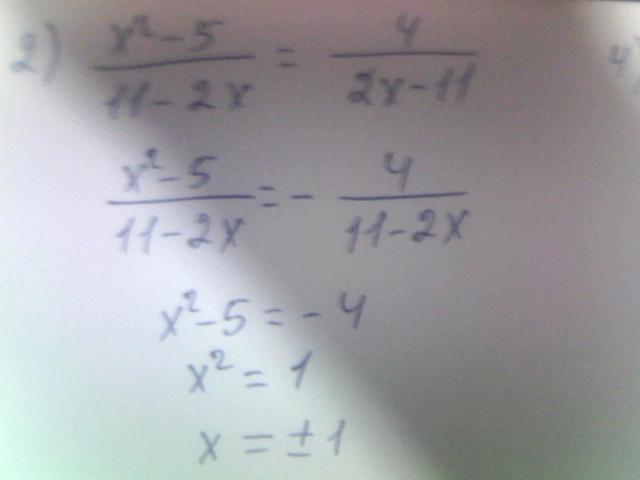 2) (x² - 5)/(11 - 2x) = 4/(2x - 11)
(x² - 5)/(11 - 2x) = - 4/(11 - 2x)
x² - 5 = - 4
x² = 1
x = ± 1
4)